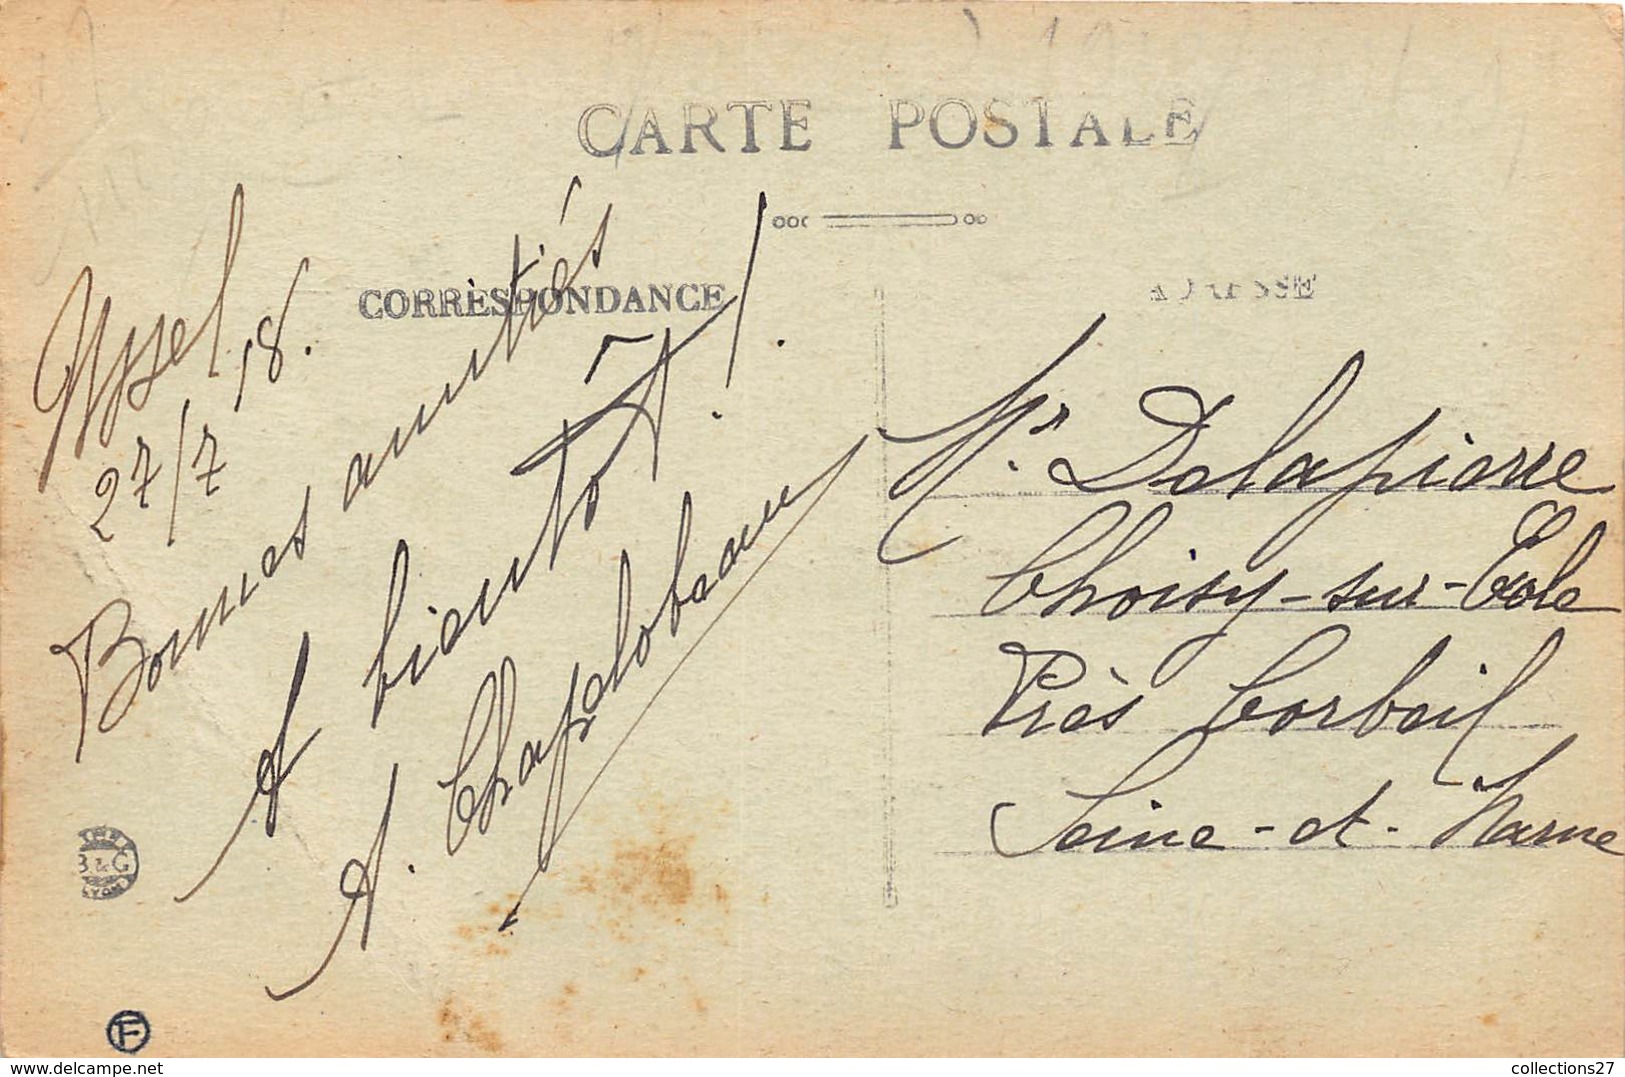 CARTE POSTALE
CORRESPONDANCE
ADRESSE
Ussel
27/7 18.
Bonnes amitiés
A bientôt !.
A. Chapelobeaux
Mr. Delapierre
Choisy-sur-Ecole
Près Corbeil
Seine-et-Marne
B & G
LYON
F
www.delcampe.net
collections27